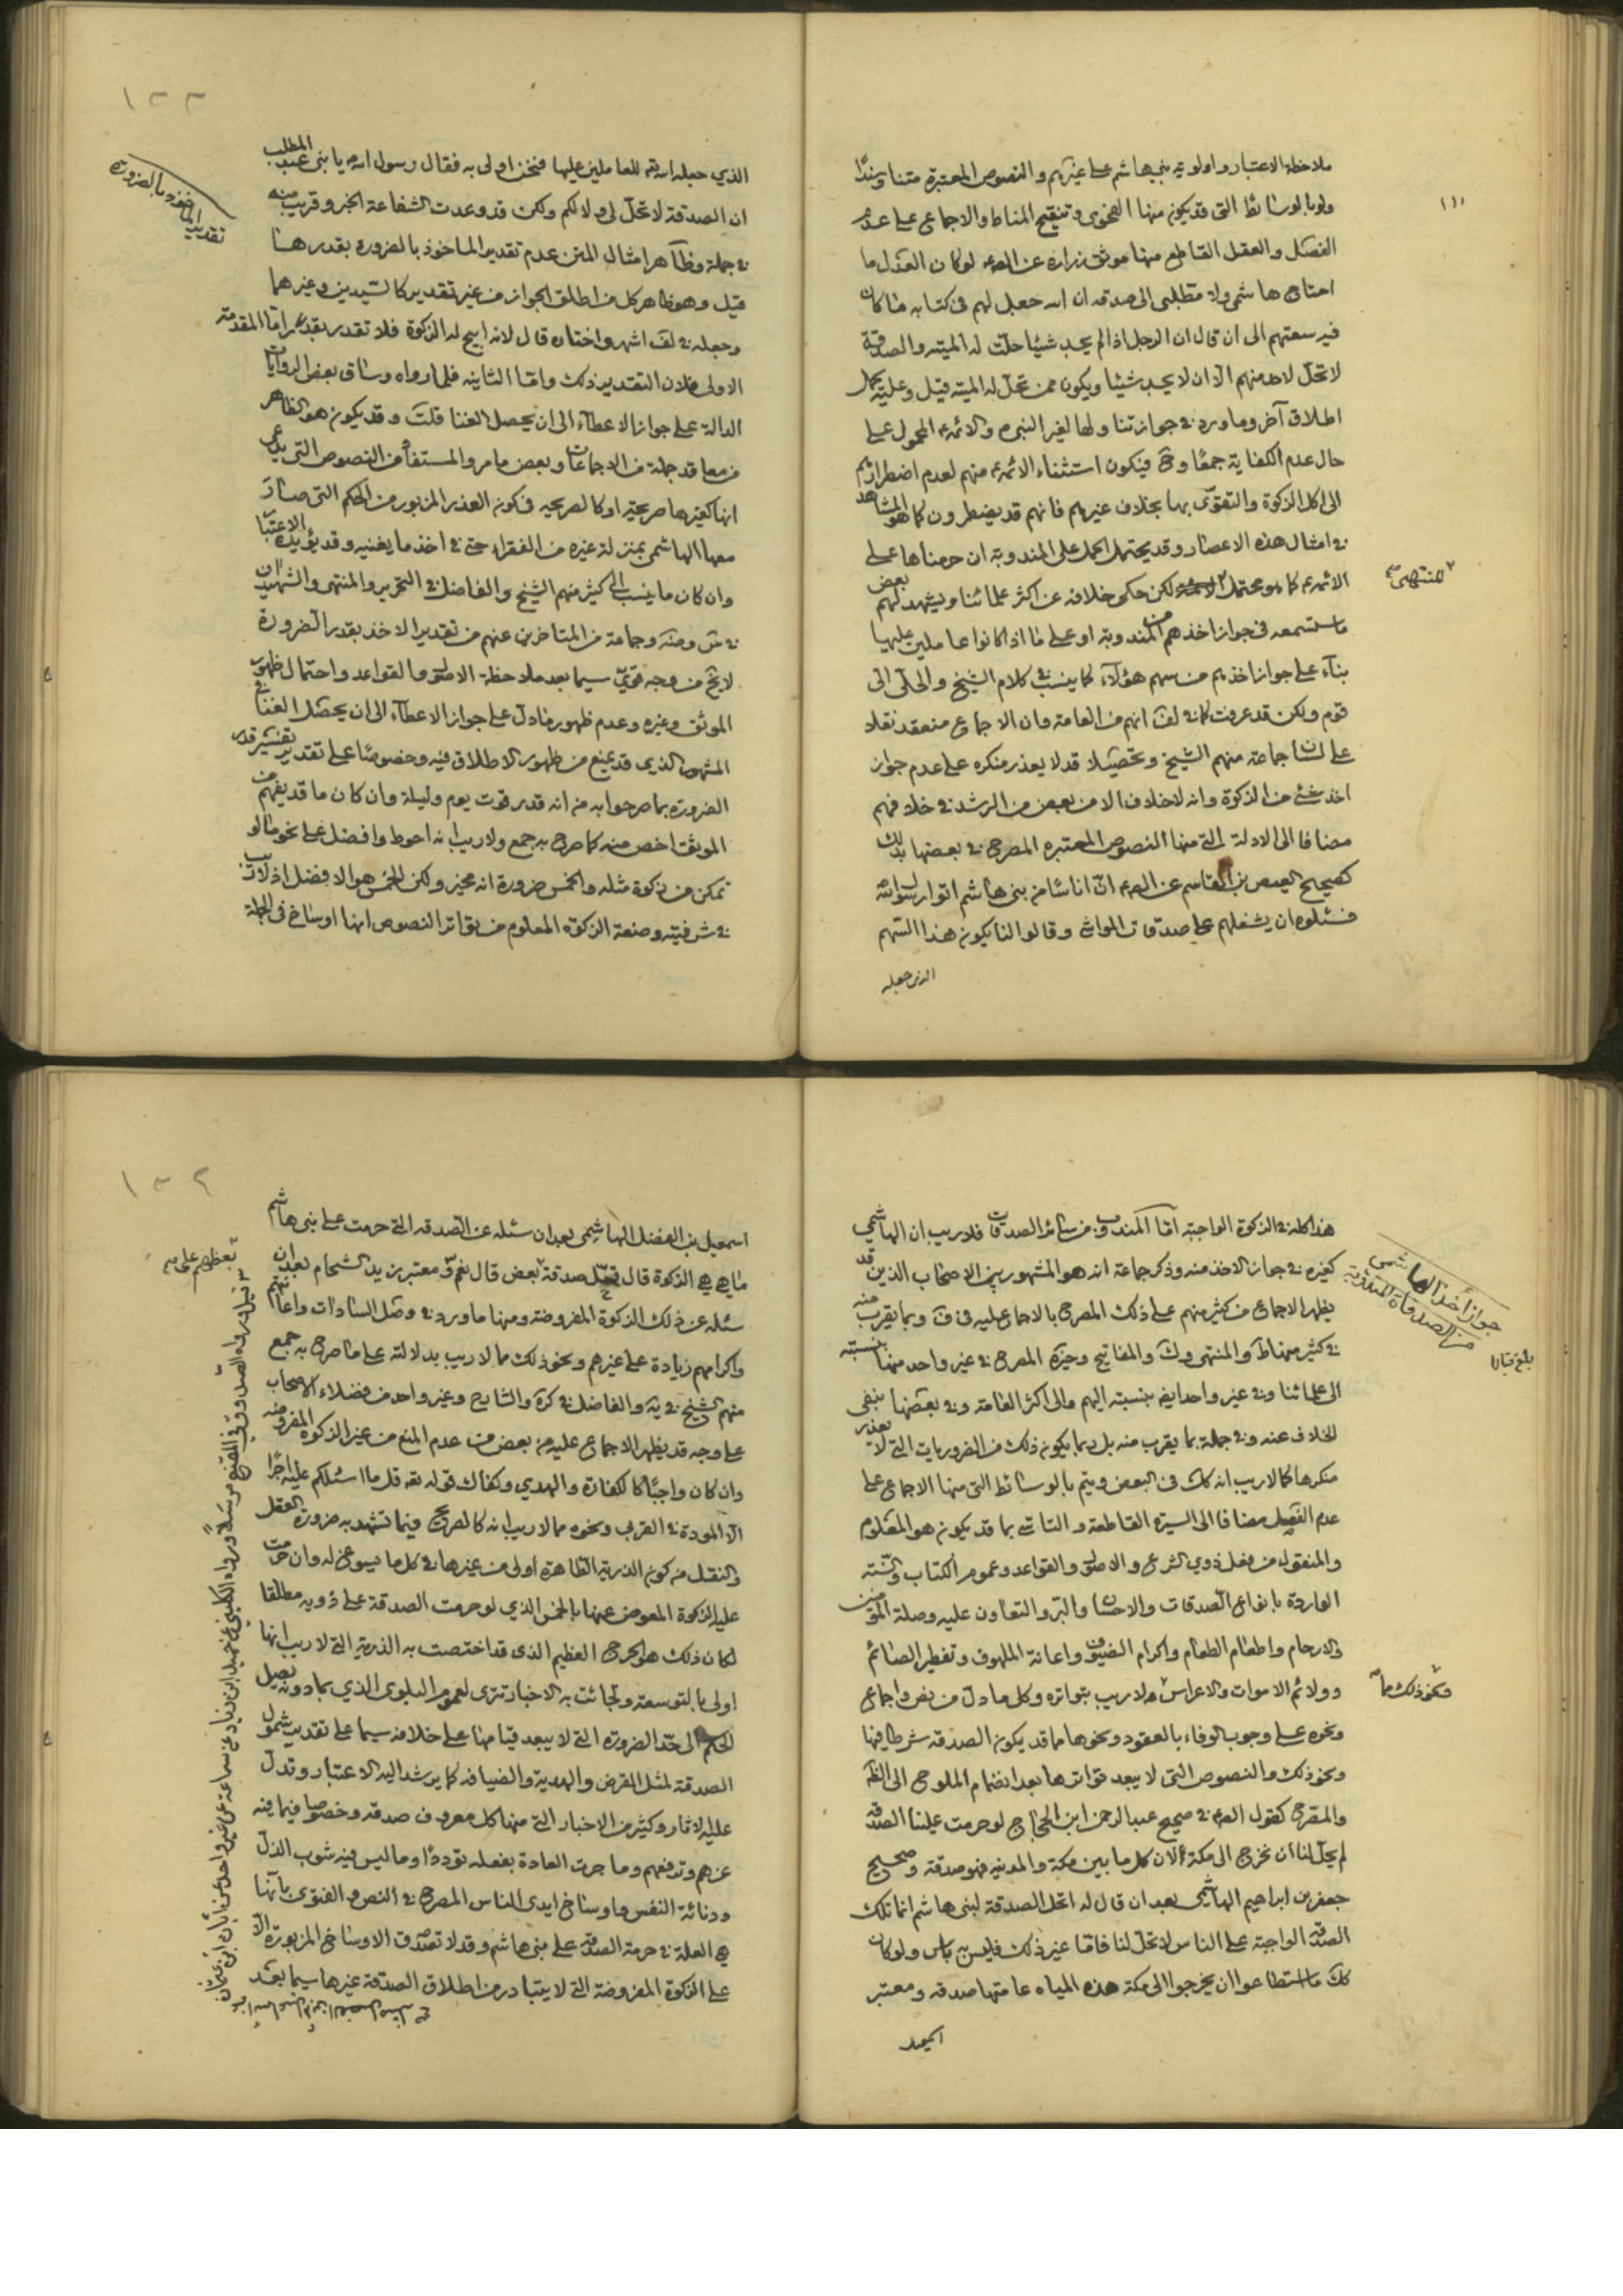 ملاحظة الاعتبار واولوية بني هاشم على غيرهم والنصوص المعتبرة متنا وسندا
ولو بالوسائط التي قد يكون منها الفحوى وتنقيح المناط والاجماع على عدم
الفصل والعقل القاطع منها موثق زرارة عن الصم لو كان العدل ما
احتاج هاشمي ولا مطلبي الى صدقه ان الله جعل لهم في كتابه ما كان
فيه سعتهم الى ان قال ان الرجل اذا لم يجد شيئا حلت له الميته والصدقة
لا تحل لاحد منهم الا ان لا يجد شيئا ويكون ممن تحل له الميته قيل وعليه يحمل
اطلاق آخر وما ورد في جواز تناولها لغير النبي ص والائمة ع المحمول على
حال عدم الكفاية جمعا وح فيكون استثناء الائمة ع منهم لعدم اضطرارهم
الى اكل الزكوة والتقوى بها بخلاف غيرهم فانهم قد يضطرون كما هو المشاهد
في امثال هذه الاعصار وقد يحتمل الحمل على المندوبة ان حرمناها على
الائمة ع كما هو محتمل لكن حكى خلافه عن اكثر علمائنا ويشهد لهم بعض
للمنتهى
ما ستسمعه في جواز اخذهم المندوبة او على ما اذا كانوا عاملين عليها
بناء على جواز اخذهم من سهم هؤلاء كما ينسب في كلام الشيخ والحلي الى
قوم ولكن قد عرفت كما في لف انهم من العامة وان الاجماع منعقد نقلا
على لسان جماعة منهم الشيخ وتحصيلا قد لا يعذر منكره على عدم جواز
اخذ شيء من الزكوة وانه لا خلاف الا من بعض من الرشد في خلافهم
مضافا الى الادلة التي منها النصوص المعتبره المصرح في بعضها بذلك
كصحيح العيص بن القاسم عن الصم ان اناسا من بني هاشم اتوا رسول الله
فسئلوه ان يشغلهم على صدقات المواشي وقالوا لنا يكون هذا السهم
الذي جعله
١٣٣
الذي جعله الله تع للعاملين عليها فنحن اولى به فقال رسول الله ص يا بني عبد المطلب
تقدير الماخوذ بالضرورة
ان الصدقة لا تحل لي ولا لكم ولكن قد وعدت الشفاعة الخبر وقريب منه
في جملة وظاهر امثال المتن عدم تقدير الماخوذ بالضرورة بقدرها
قيل وهو ظاهر كل من اطلق الجواز من غير تقدير كالسيدين وغيرهما
وجعله في لف اشهر واختاره قال لانه ابيح له الزكوة فلا تقدر بقدر اما المقدمة
الاولى فلان التقدير ذلك واما الثانيه فلما رواه وساق بعض الروايات
الدالة على جواز الاعطاء الى ان يحصل الغنا قلت وقد يكون هو الظاهر
من معاقد جملة من الاجماعات وبعض ما مر والمستفاد من النصوص التي يدعى
انها كغيرها صريحة او كالصريحه في كون العذر المزبور من الحكم التي صار
معها الهاشمي بمنزلة غيره من الفقراء حتى في اخذ ما يغنيه وقد يؤيده الاعتبار
وان كان ما ينسب الى كثير منهم الشيخ والفاضل في التحرير والمنتهى والشهيدان
في س وضه وجماعة من المتاخرين عنهم من تقدير الاخذ بقدر الضرورة
لا يخ من وجه قوي سيما بعد ملاحظة الاصول والقواعد واحتمال ظهور
الموثق وغيره وعدم ظهور ما دل على جواز الاعطاء الى ان يحصل الغنا في
المشهور الذي قد يمنع من ظهور الاطلاق فيه وخصوصا على تقدير تفسير قدر
الضرورة بما صرحوا به من انه قدر قوت يوم وليلة وان كان ما قد يفهم من
الموثق اخص منه كما صرح به جمع ولا ريب انه احوط وافضل على نحو ما لو
تمكن من زكوة مثله والخمس ضرورة انه مخير ولكن الخمس هو الافضل اذ لا ريب
في شرفيته وصنعة الزكوة المعلوم من تواتر النصوص انها اوساخ في الجملة
هذا كله في الزكوة الواجبة اما المندوب من سائر الصدقات فلا ريب ان الهاشمي
جواز اخذ الهاشمي من الصدقات المندوبة
كغيره في جواز الاخذ منه وذكر جماعة انه هو المشهور بين الاصحاب الذين قد
يظهر الاجماع من كثير منهم على ذلك المصرح بالاجماع عليه في ف وبما يقرب منه
في كثير منها ط والمنتهى وك والمفاتيح وخيره المصرح في غير واحد منها بنسبته
الى علمائنا وفي غير واحد ايض بنسبته اليهم والى اكثر العامة وفي بعضها بنفي
الخلاف عنه وفي جملة بما يقرب منه بل ربما يكون ذلك من الضروريات التي لا يعذر
منكرها كما لا ريب انه كك في البعض ويتم بالوسائط التي منها الاجماع على
عدم الفصل مضافا الى السيرة القاطعة والتاسي بما قد يكون هو المعلوم
والمنقول من فعل ذوي الشرع والاصول والقواعد وعموم الكتاب والسنة
الواردة بانواع الصدقات والاحسان والبر والتعاون عليه وصلة المؤمنين
والارحام واطعام الطعام واكرام الضيوف واعانة الملهوف وتفطير الصائم
وولائم الاموات والاعراس ولا ريب بتواتره وكل ما دل من نص واجماع
ونحو ذلك مما
ونحوه على وجوب الوفاء بالعقود ونحوها مما قد يكون الصدقه شرطا فيها
ونحو ذلك والنصوص التي لا يبعد تواترها بعد انضمام الملوح الى الظه
والمصرح كقول الصم في صحيح عبد الرحمن ابن الحجاج لو حرمت علينا الصدقه
لم يحل لنا ان نخرج الى مكة لان كل ما بين مكة والمدينه فهو صدقة وصحيح
جعفر بن ابراهيم الهاشمي بعد ان قال له اتحل الصدقة لبني هاشم انما تلك
الصدقه الواجبة على الناس لا تحل لنا فاما غير ذلك فليس به باس ولو كان
كك ما استطاعوا ان يخرجوا الى مكة هذه المياه عامتها صدقه ومعتبر
اسمعيل
اسمعيل بن الفضل الهاشمي بعد ان سئله عن الصدقه التي حرمت على بني هاشم
ما هي هي الزكوة قال تحل صدقة بعض قال نعم ومعتبر زيد الشحام بعد ان
بعضهم على
سئله عن ذلك الزكوة المفروضة ومنها ما ورد في وصل السادات واعانتهم
واكرامهم زيادة على غيرهم ونحو ذلك مما لا ريب بدلالته على ما صرح به جمع
منهم الشيخ في يه والفاضل في كره والشارح وغير واحد من فضلاء الاصحاب
على وجه قد يظهر الاجماع عليه من بعض من عدم المنع من غير الزكوة المفروضه
وان كان واجبا كالكفارة والهدي وكفاك قوله تعه قل ما اسئلكم عليه اجرا
الا المودة في القربى ونحوه مما لا ريب انه كالصريح فيما تشهد به ضرورة العقل
والنقل من كون الذرية الطاهرة اولى من غيرها في كل ما يسوغ له وان حرمت
عليه الزكوة المعوض عنها بالخمس الذي لو حرمت الصدقة على ذويه مطلقا
لكان ذلك هو الحرج العظيم الذي قد اختصت به الذرية التي لا ريب انها
اولى بالتوسعة ولجائت به الاخبار تترى لعموم البلوى الذي بما دونه يصل
الحكم الى حد الضرورة التي لا يبعد قيامها على خلافه سيما على تقدير شمول
الصدقة لمثل القرض والهدية والضيافه كما يرشد اليه الاعتبار وتدل
عليه الاثار وكثير من الاخبار التي منها كل معروف صدقه وخصوصا فيما فيه
عزهم وترفعهم وما جرت العادة بفعله توددا وما ليس فيه شوب الذل
ودنائة النفس واوساخ ايدي الناس المصرح في النص والفتوى بانها
هي العلة في حرمة الصدقه على بني هاشم وقد لا تصدق الاوساخ المزبورة الا
على الزكوة المفروضة التي لا يتبادر من اطلاق الصدقة غيرها سيما بعد